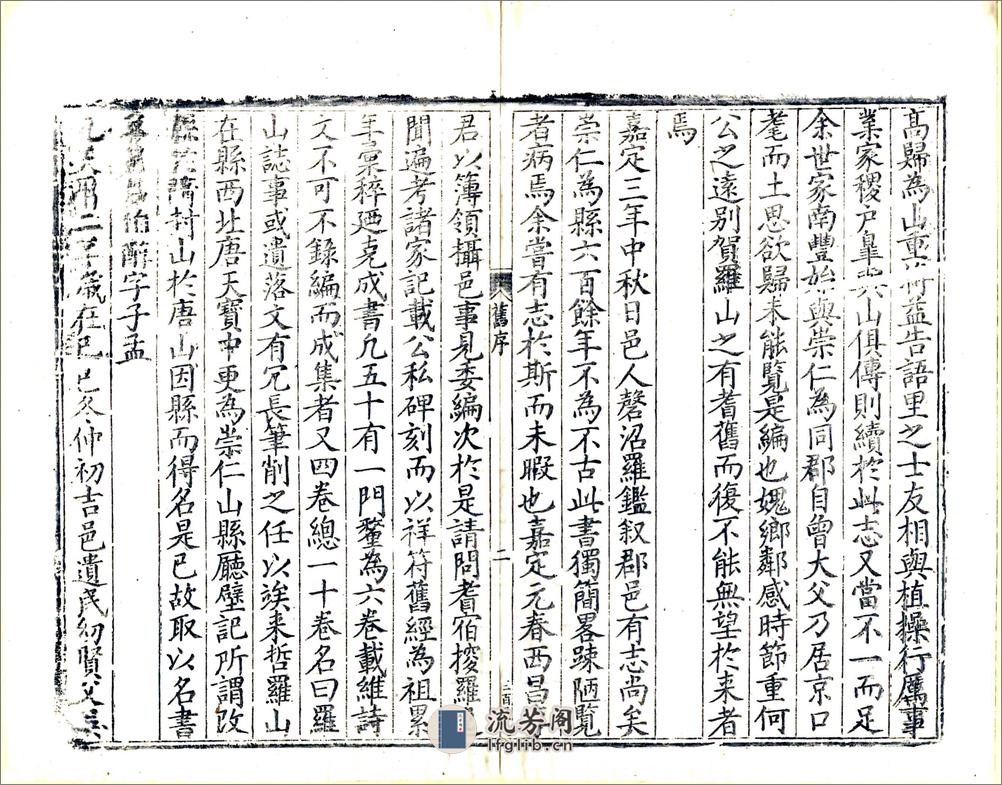 高歸為山重 益告語里之士友相與植操行厲事
業家稷户臯 山俱傳則續於此志又當不一而足
余世家南豐始與崇仁為同郡自曾大父乃居京口
耄而土思欲歸未能覽是編也媿鄉鄰感時節重何
公之遠别賀羅山之有耆舊而後不能無望於来者
焉
嘉定三年中秋日邑人磬沼羅鑑叙郡邑有志尚矣
崇仁為縣六百餘年不為不古此書獨簡畧踈陋覽
者病焉余嘗有志於斯而未暇也嘉定元春西昌
舊序
二
君以簿領攝邑事見委編次於是請問耆宿搜羅
聞遍考諸家記載公私碑刻而以祥符舊經為祖累
年彙稡廼克成書凢五十有一門釐為六卷載維詩
文不可不錄編而成集者又四卷總一十卷名曰羅
山誌事或遺落文有冗長筆削之任以俟来哲羅山
在縣西北唐天寶中更為崇仁山縣廳壁記所謂改
縣 隋封山於唐山因縣而得名是已故取以名書
辭字子孟
二 歲在己巳冬仲初吉邑遺民幼賢父
流芳阁
lfglib.cn